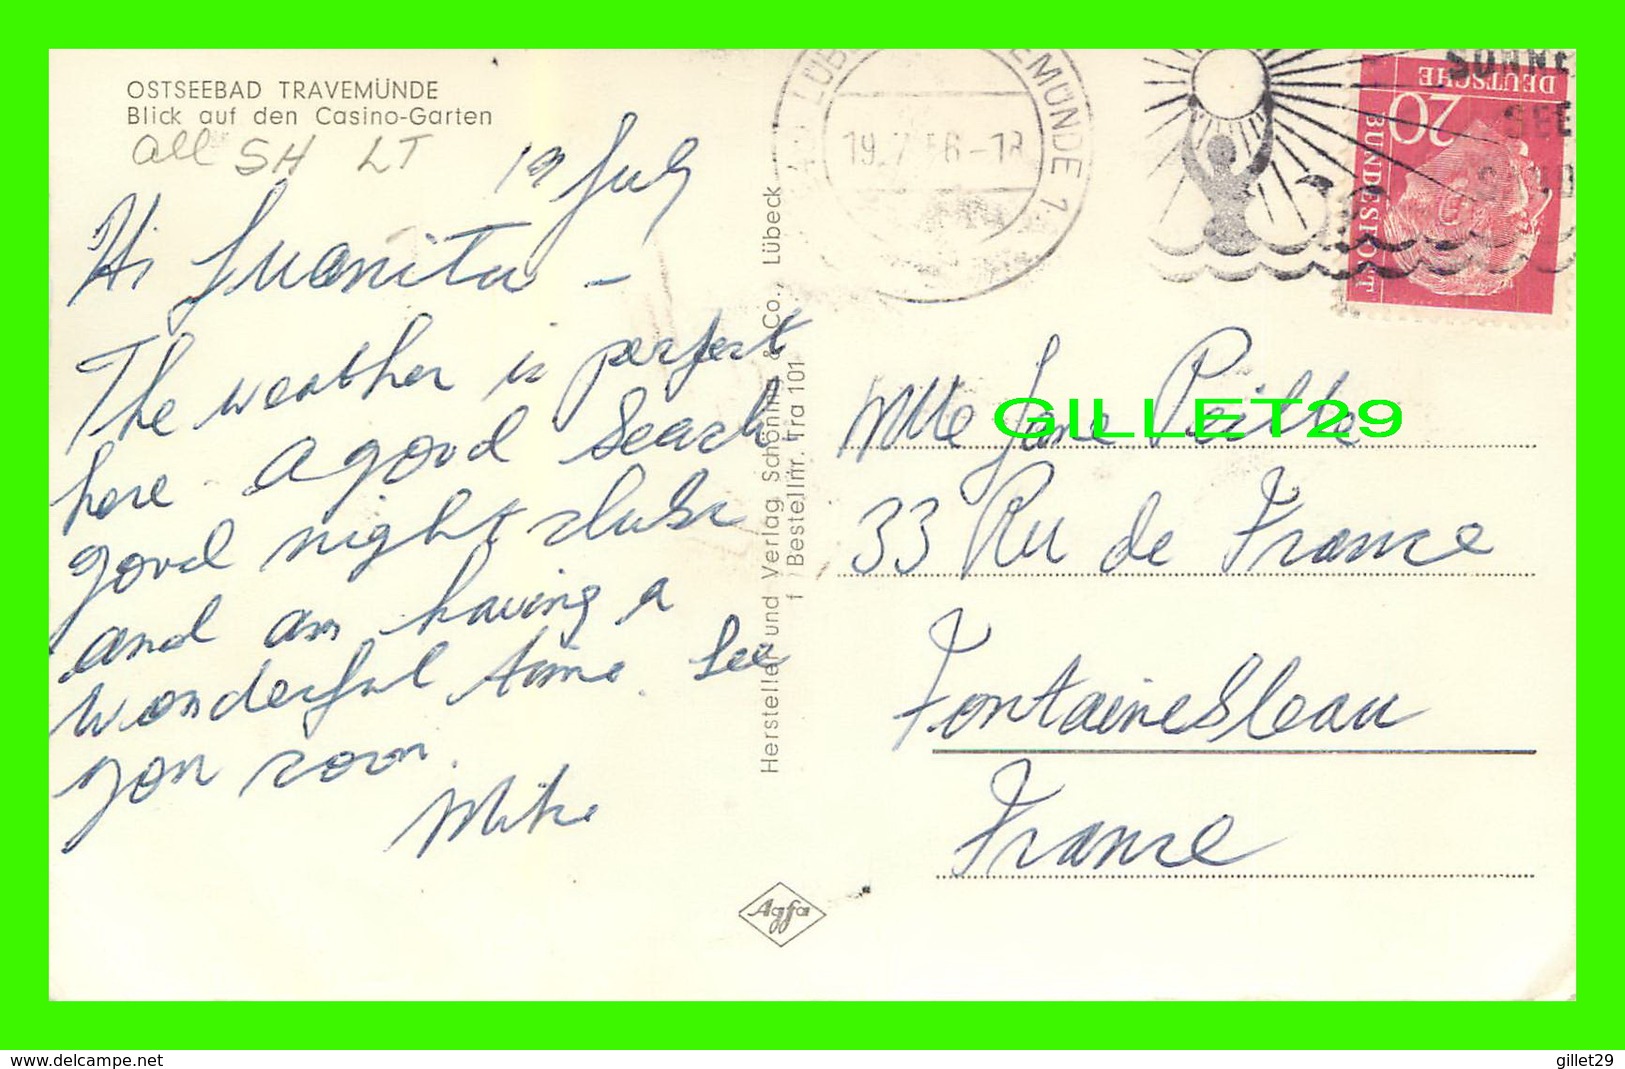 OSTSEEBAD TRAVEMÜNDE
Blick auf den Casino-Garten
all SH LT
19 July
Hi Juanita -
The weather is perfect
here. A good beach
good night clubs
and am having a
wonderful time. See
you soon.
Mike
Hersteller und Verlag Schöning & Co., Lübeck
Bestellnr. Tra 101
19.7.56-18
SONNE
SEE
20
DEUTSCHE
BUNDESPOST
Mlle Jane
33 Ru de France
Fontainebleau
France
Agfa
GILLET29
www.delcampe.net
gillet29